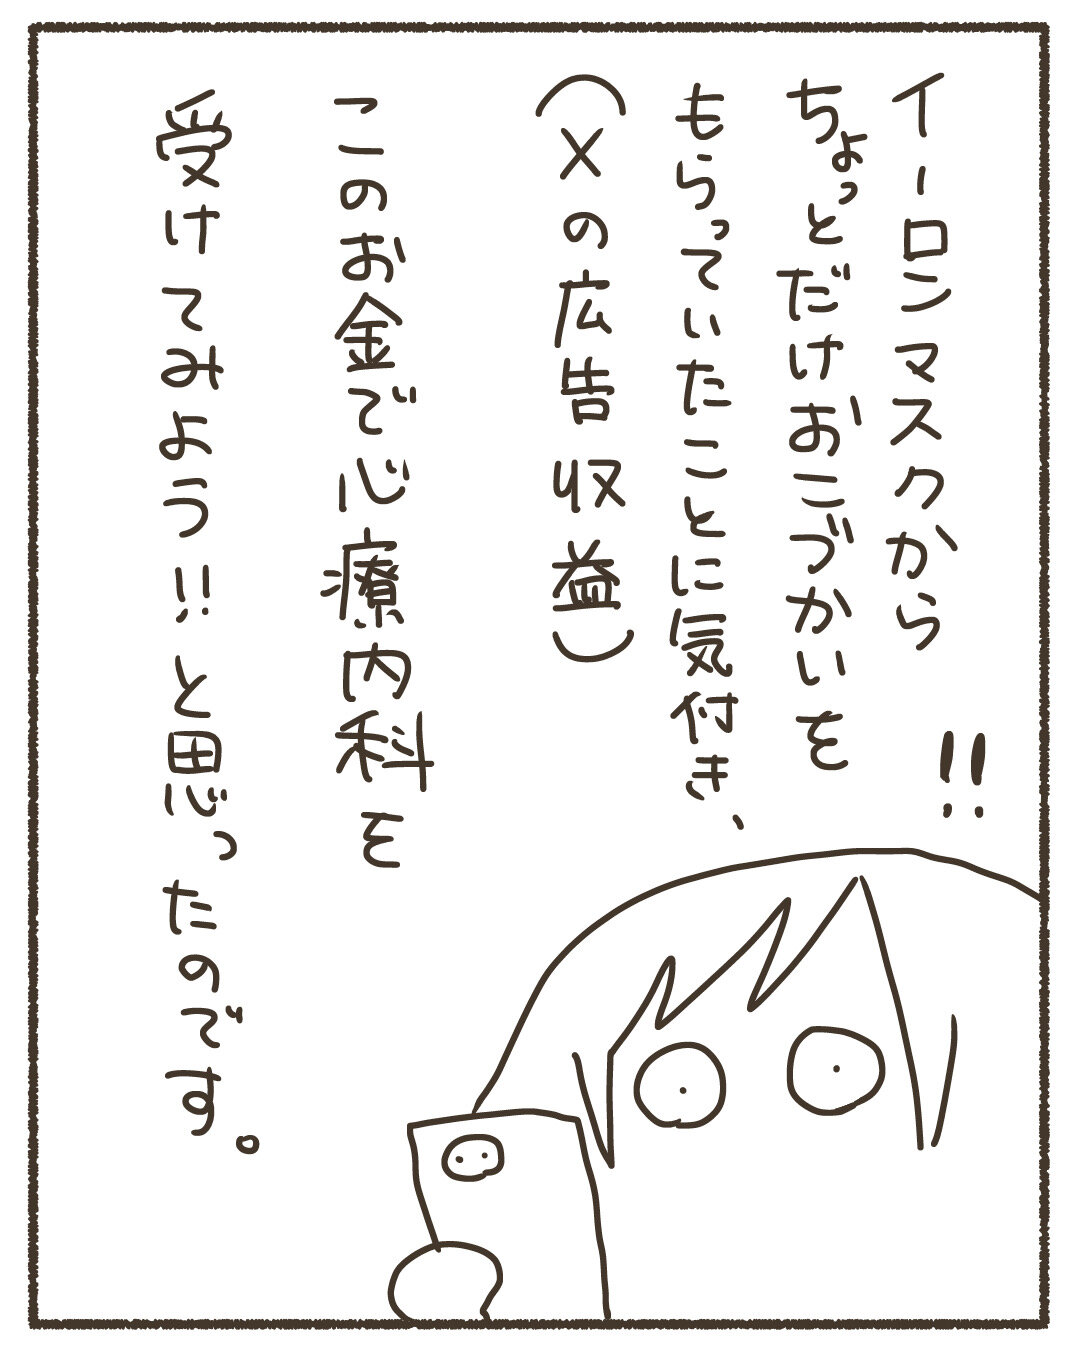 イーロンマスクから
ちょっとだけおこづかいを
もらっていたことに気付き、
（Xの広告収益）
このお金で心療内科を
受けてみよう!!と思ったのです。
!!